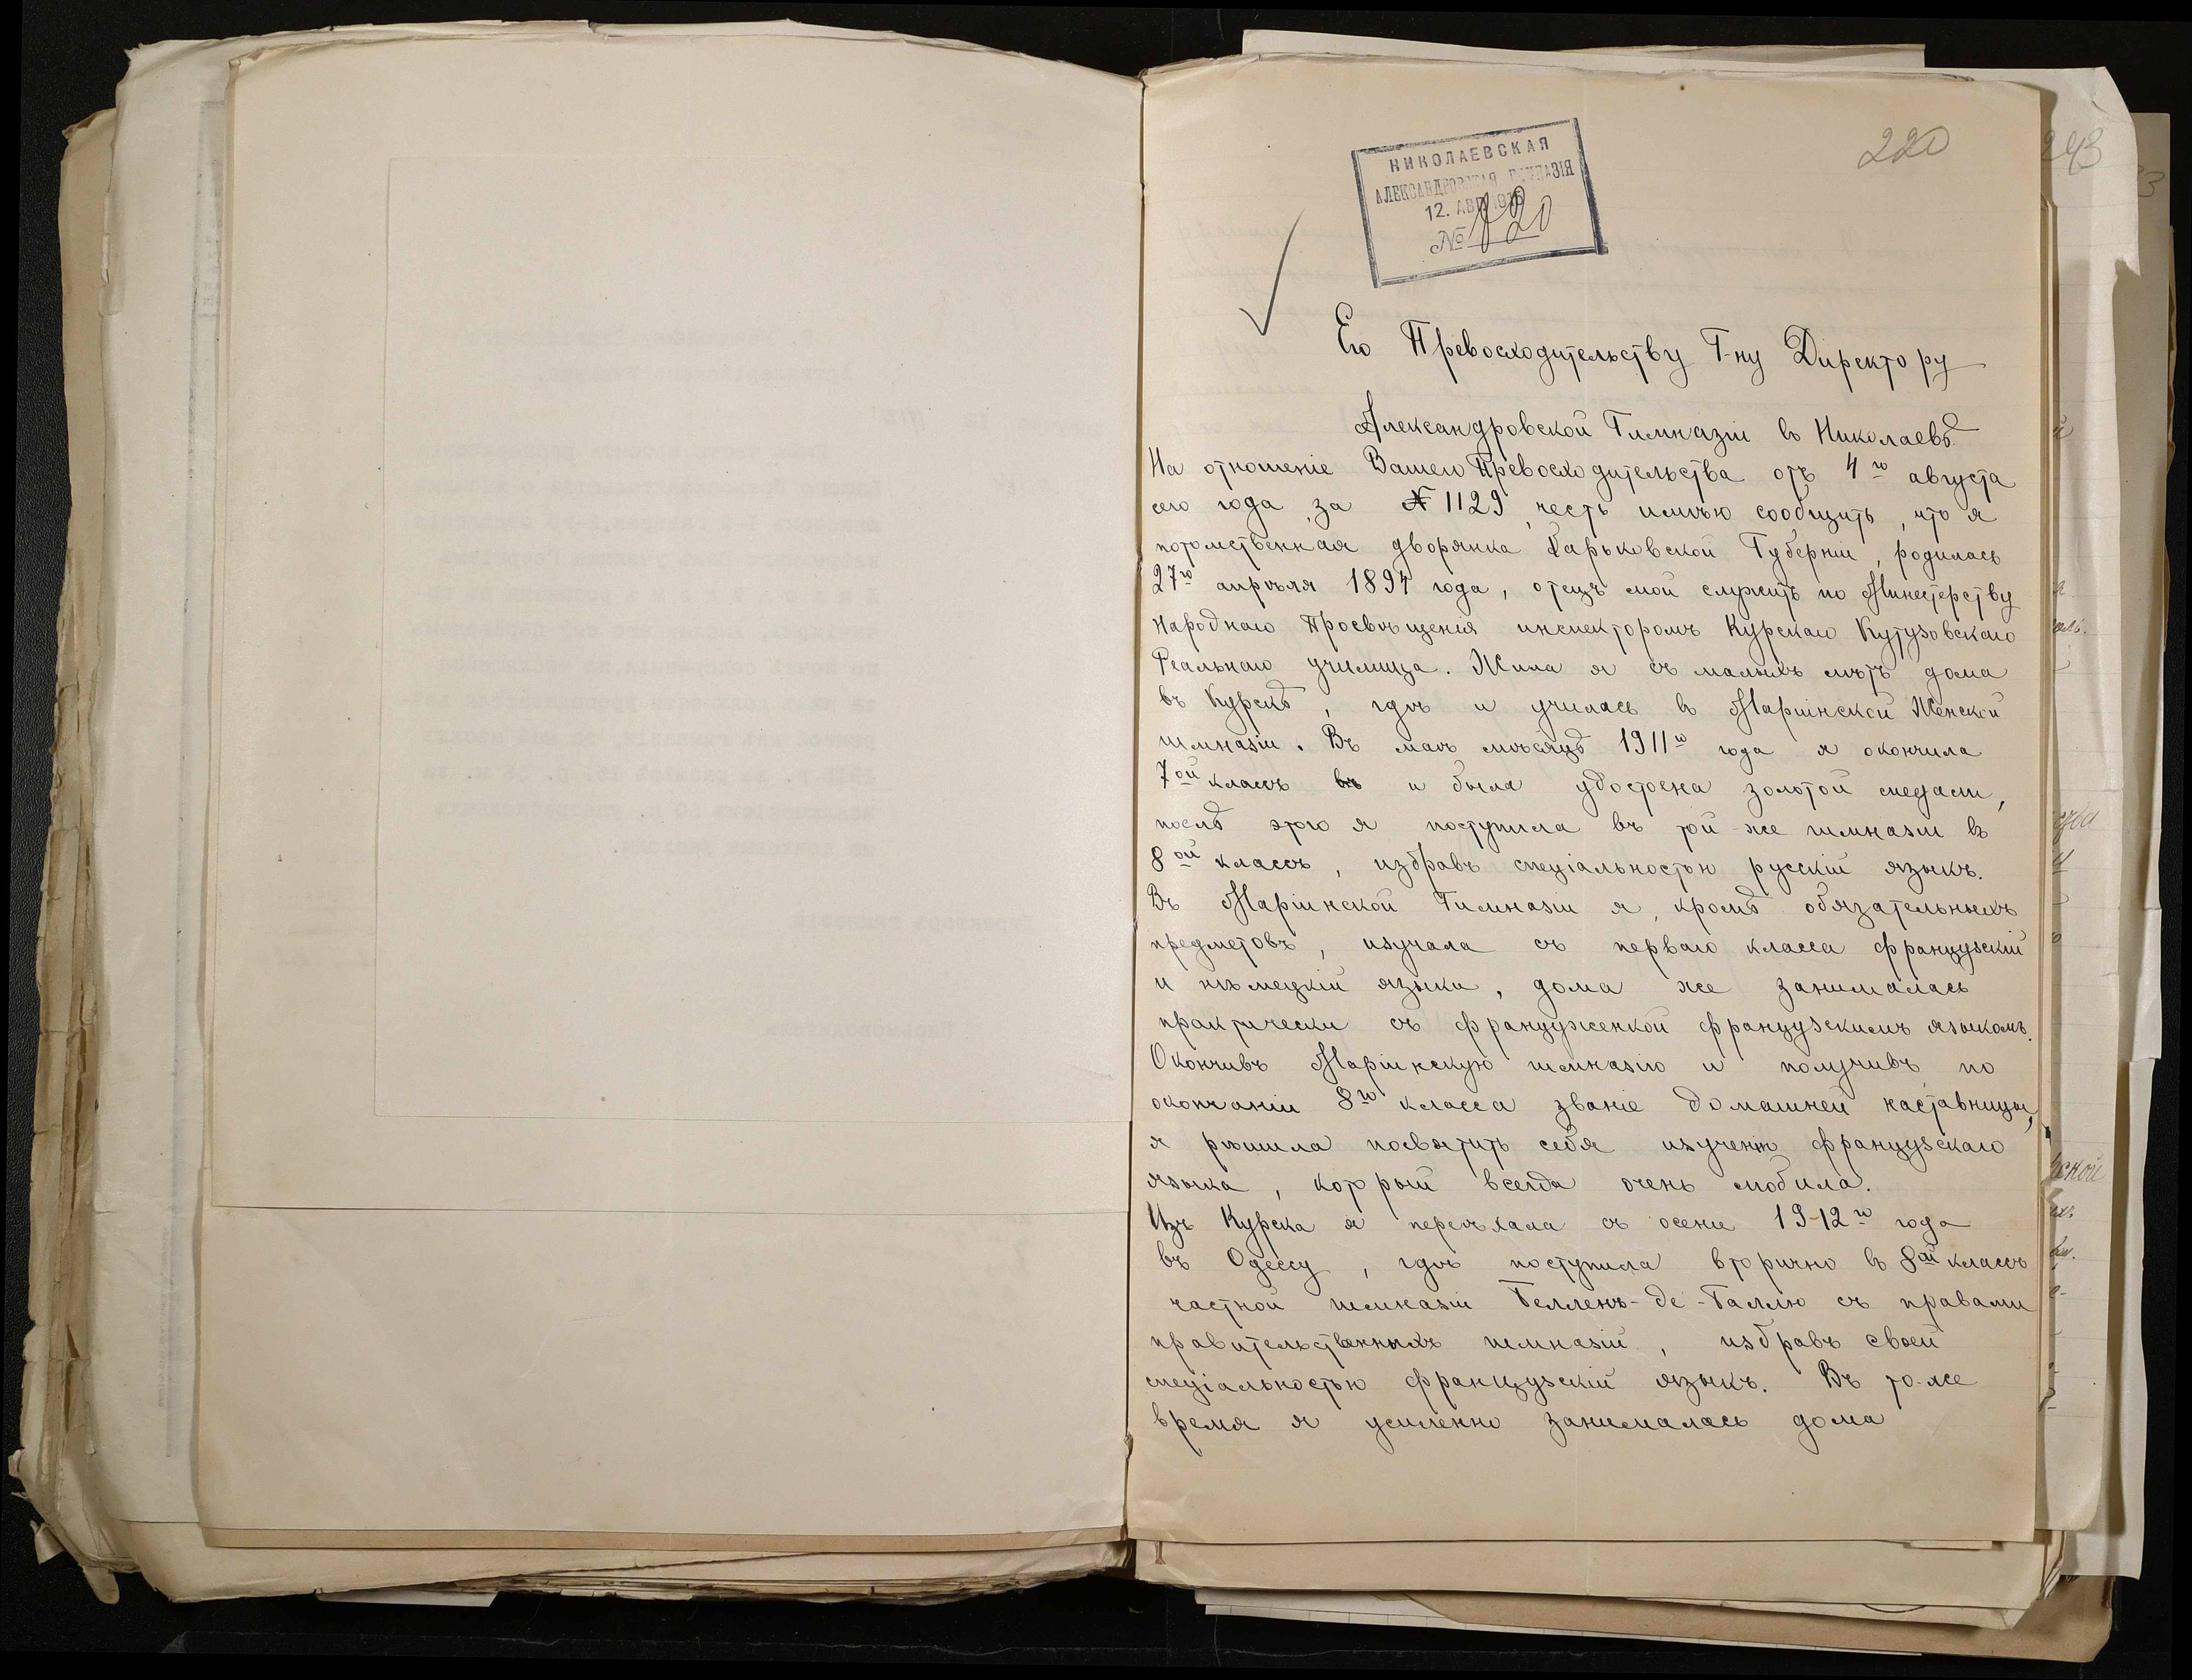 220
НИКОЛАЕВСКАЯ
АЛЕКСАНДРОВСКАЯ ГИМНАЗІЯ
12. АВГ
№ 120
Его Превосходительству Г-ну Директору
Александровской Гимназіи въ Николаевѣ.
На отношеніе Вашего Превосходительства отъ 4го августа
сего года за № 1129, честь имѣю сообщить, что я
потомственная дворянка Харьковской Губерніи, родилась
27го апрѣля 1894 года, отецъ мой служитъ по Министерству
Народнаго Просвѣщенія инспекторомъ Курскаго Кутузовскаго
Реальнаго училища. Жила я съ малыхъ лѣтъ дома
въ Курскѣ, гдѣ и училась въ Маріинской Женской
гимназіи. Въ маѣ мѣсяцѣ 1911го года я окончила
7ой классъ и была удостоена золотой медали,
послѣ этого я поступила въ той-же гимназіи въ
8ой классъ, избравъ спеціальностью русскій языкъ.
Въ Маріинской Гимназіи я, кромѣ обязательныхъ
предметовъ, изучала съ перваго класса французскій
и нѣмецкій языки, дома же занималась
практически съ француженкой французскимъ языкомъ.
Окончивъ Маріинскую гимназію и получивъ по
окончаніи 8го класса званіе домашней наставницы,
я рѣшила посвятить себя изученію французскаго
языка, который всегда очень любила.
Изъ Курска я переѣхала съ осени 1912го года
въ Одессу, гдѣ поступила вторично въ 8ой классъ
частной гимназіи Белленъ-де-Баллю съ правами
правительственныхъ гимназій, избравъ своей
спеціальностью французскій языкъ. Въ то-же
время я усиленно занималась дома